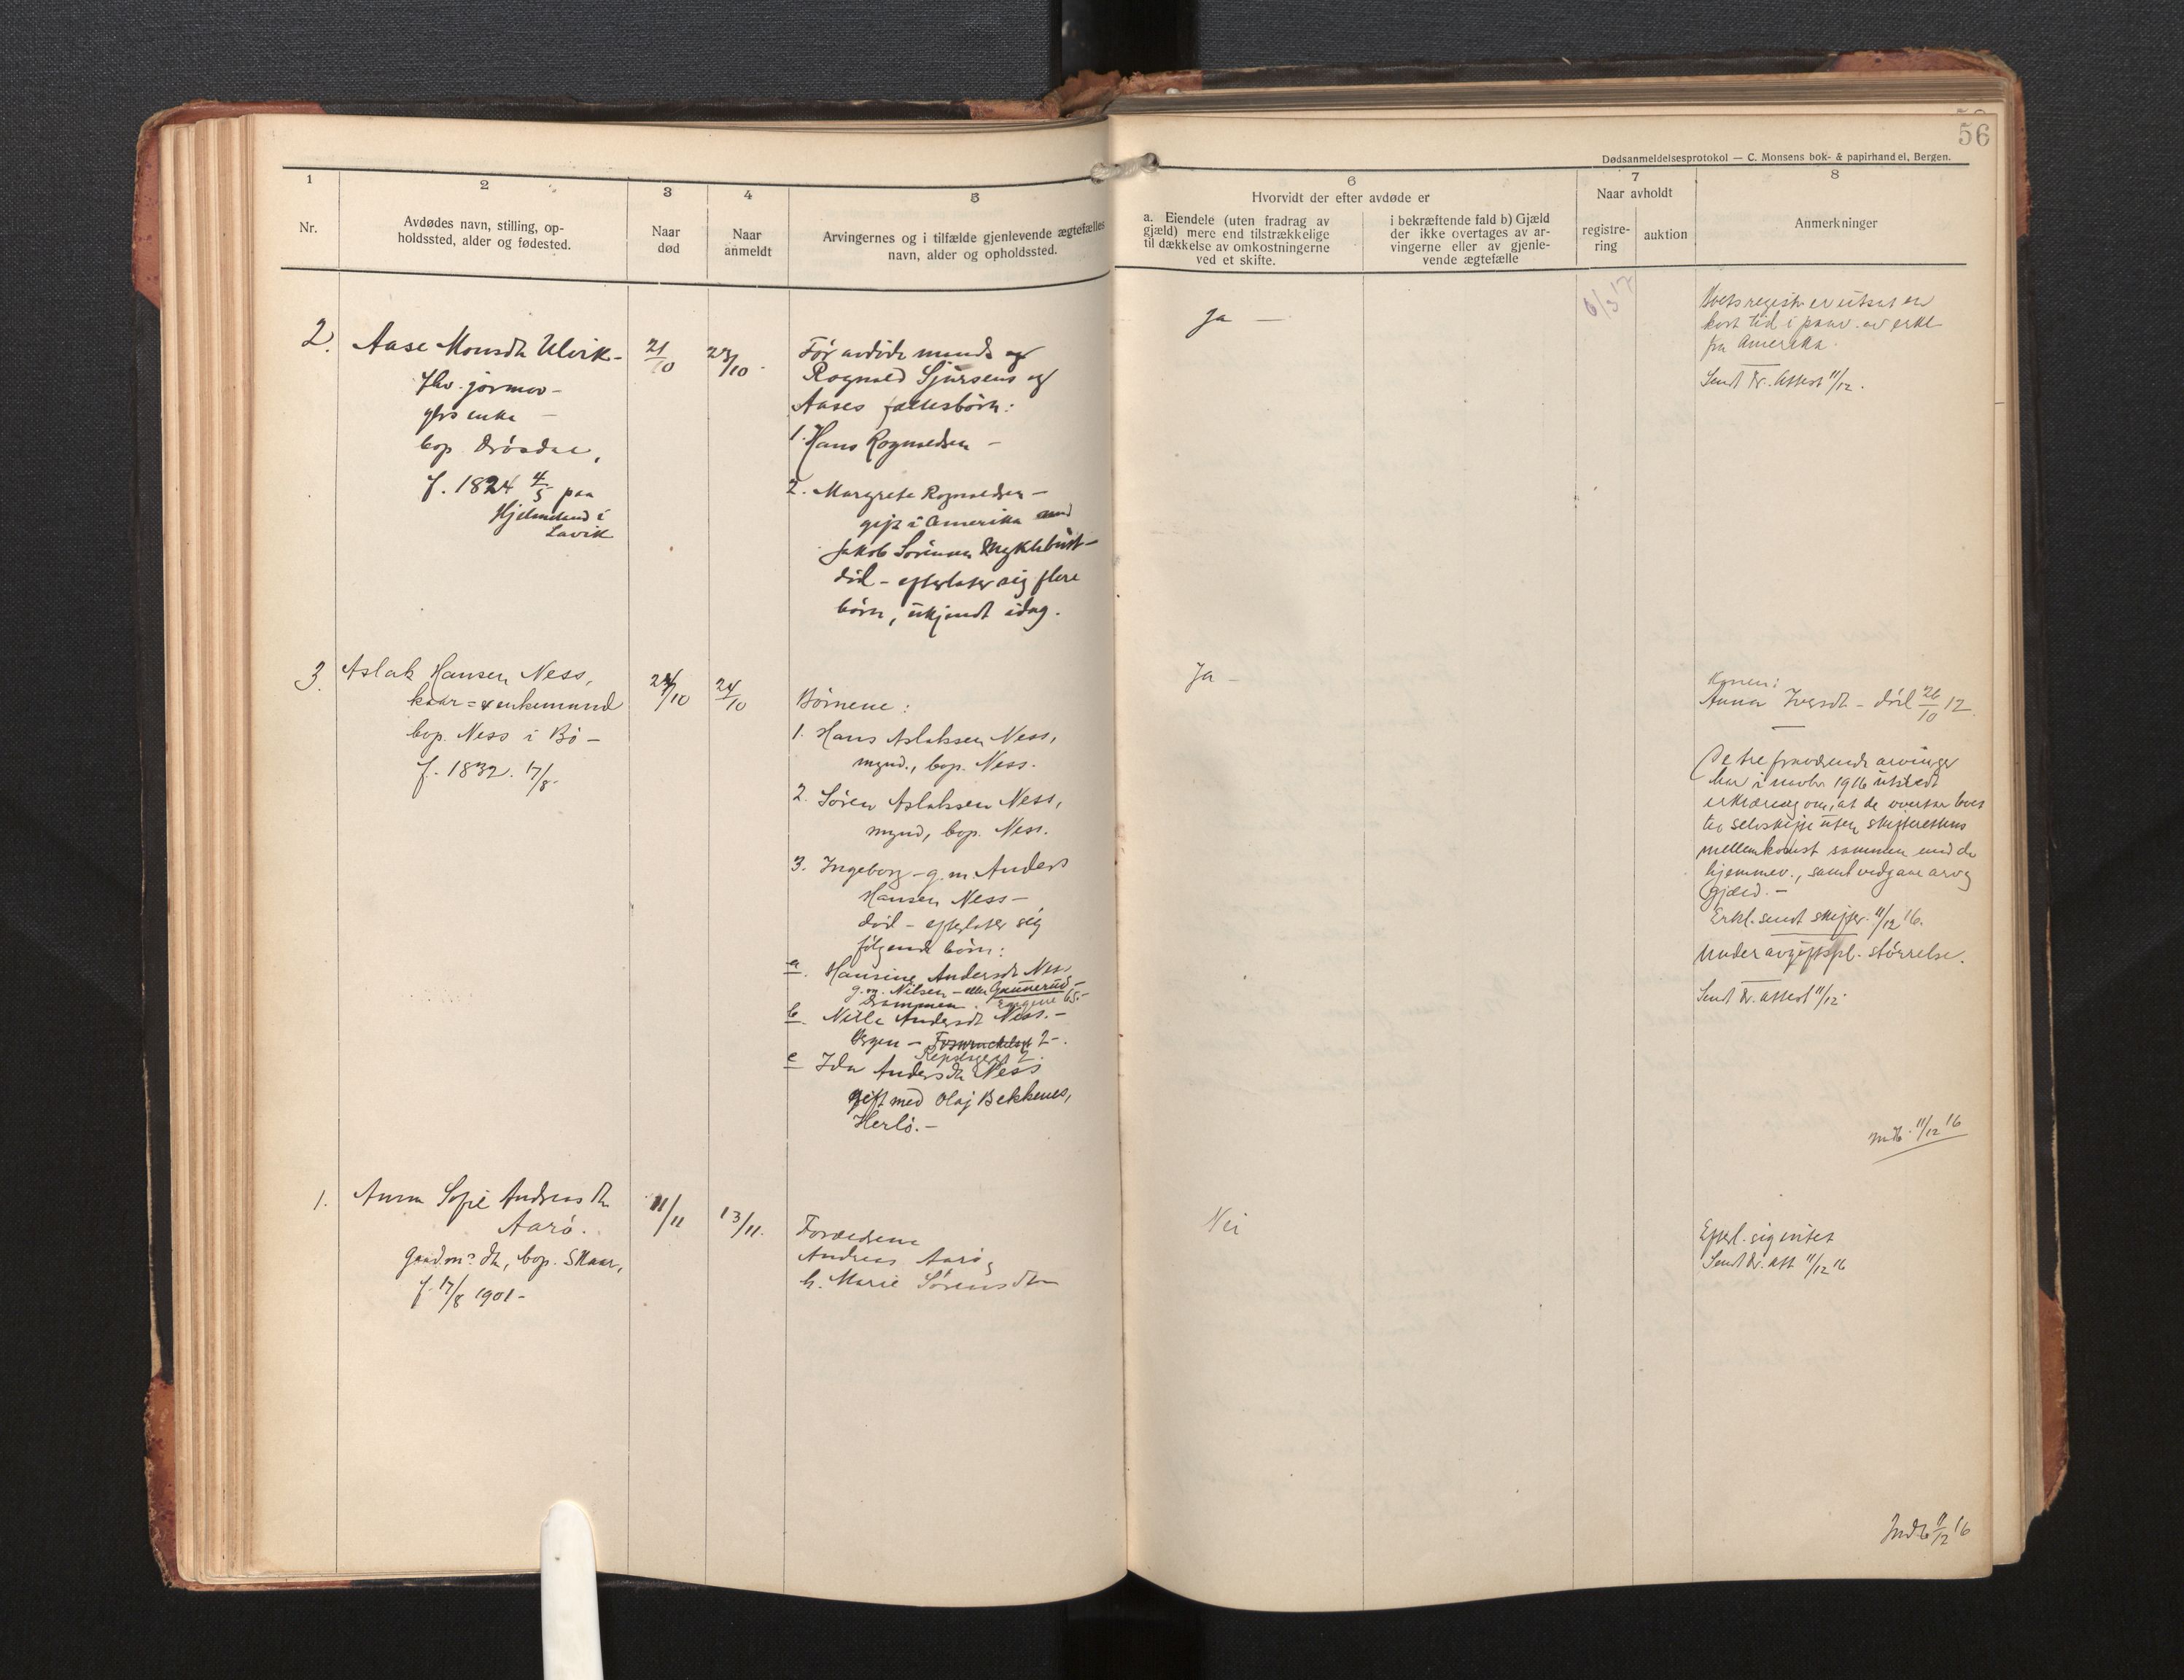 56
Dødsanmeldelsesprotokol — C. Monsens bok- & papirhandel, Bergen.
1
Nr.
2
Avdødes navn, stilling, op-
holdssted, alder og fødested.
3
Naar
død
4
Naar
anmeldt
5
Arvingernes og i tilfælde gjenlevende ægtefælles
navn, alder og opholdssted.
6
Hvorvidt der efter avdøde er
a. Eiendele (uten fradrag av
gjæld) mere end tilstrækkelige
til dækkelse av omkostningerne
ved et skifte.
i bekræftende fald b) Gjæld
der ikke overtages av ar-
vingerne eller av gjenle-
vende ægtefælle
7
Naar avholdt
registre-
ring
auktion
8
Anmerkninger
2.
Aase Monsdtr Ulvik-
fhv.
enke —
bop.
f. 1824 4/5 paa
Hjelmeland i
Lavik
21/10
23/10.
Før avdøde mands og
Rognald Sjursens og
Aases fællesbørn:
1. Hans Rognaldsen —
2. Margrete Rognaldsen —
gift i Amerika med
Jakob Sørensen Myklebust —
død — efterlater sig flere
børn, ukjendt idag.
Ja —
6/3 17
er utsat en
kort tid i paav. av erkl
fra Amerika.
Sendt dr. attest 11/12.
3.
Aslak Hansen Ness,
kaar= & enkemand
bop. Ness i Bø —
f. 1832. 17/8.
24/10
24/10
Børnene:
1. Hans Aslaksen Ness,
mynd., bop. Ness.
2. Søren Aslaksen Ness,
mynd, bop. Ness.
3. Ingeborg — g.m. Anders
Hansen Ness —
død — efterlater sig
følgende børn:
a. Hansine Andersdtr Ness
g.m. Nilsen — eller Gunnerud —
Drammen. Engene 65.-
b. Nille Andersdt Ness. —
Bergen — 2 —.
2.
c Ida Andersdtr Ness
gift med Olaj Bekkenes,
Herlø. —
Ja —
Konen:
Anna Iversdt — død 26/10 12.
De tre fraværende arvinger
har i novbr 1916 utstedt
erklæring om, at de overtar boet
til selvskifte uten skifterettens
mellemkomst sammen med de
hjemmev., samt vedgaar arv og
gjæld. —
Erkl. sendt skifter. 11/12 16.
Under avgiftspl. størrelse.
Sendt dr. attest 11/12.
Indb. 11/12 16
1.
Anna Sofie Andreasdtr
Aarø.
Gaardm's dtr, bop. Skaar,
f. 17/8 1901 —
11/11
13/11.
Forældrene
Andreas Aarø og
h. Marie Sørensdtr
Nei
Efterl. sig intet
Sendt dr. att 11/12 16
Indb 11/12 16